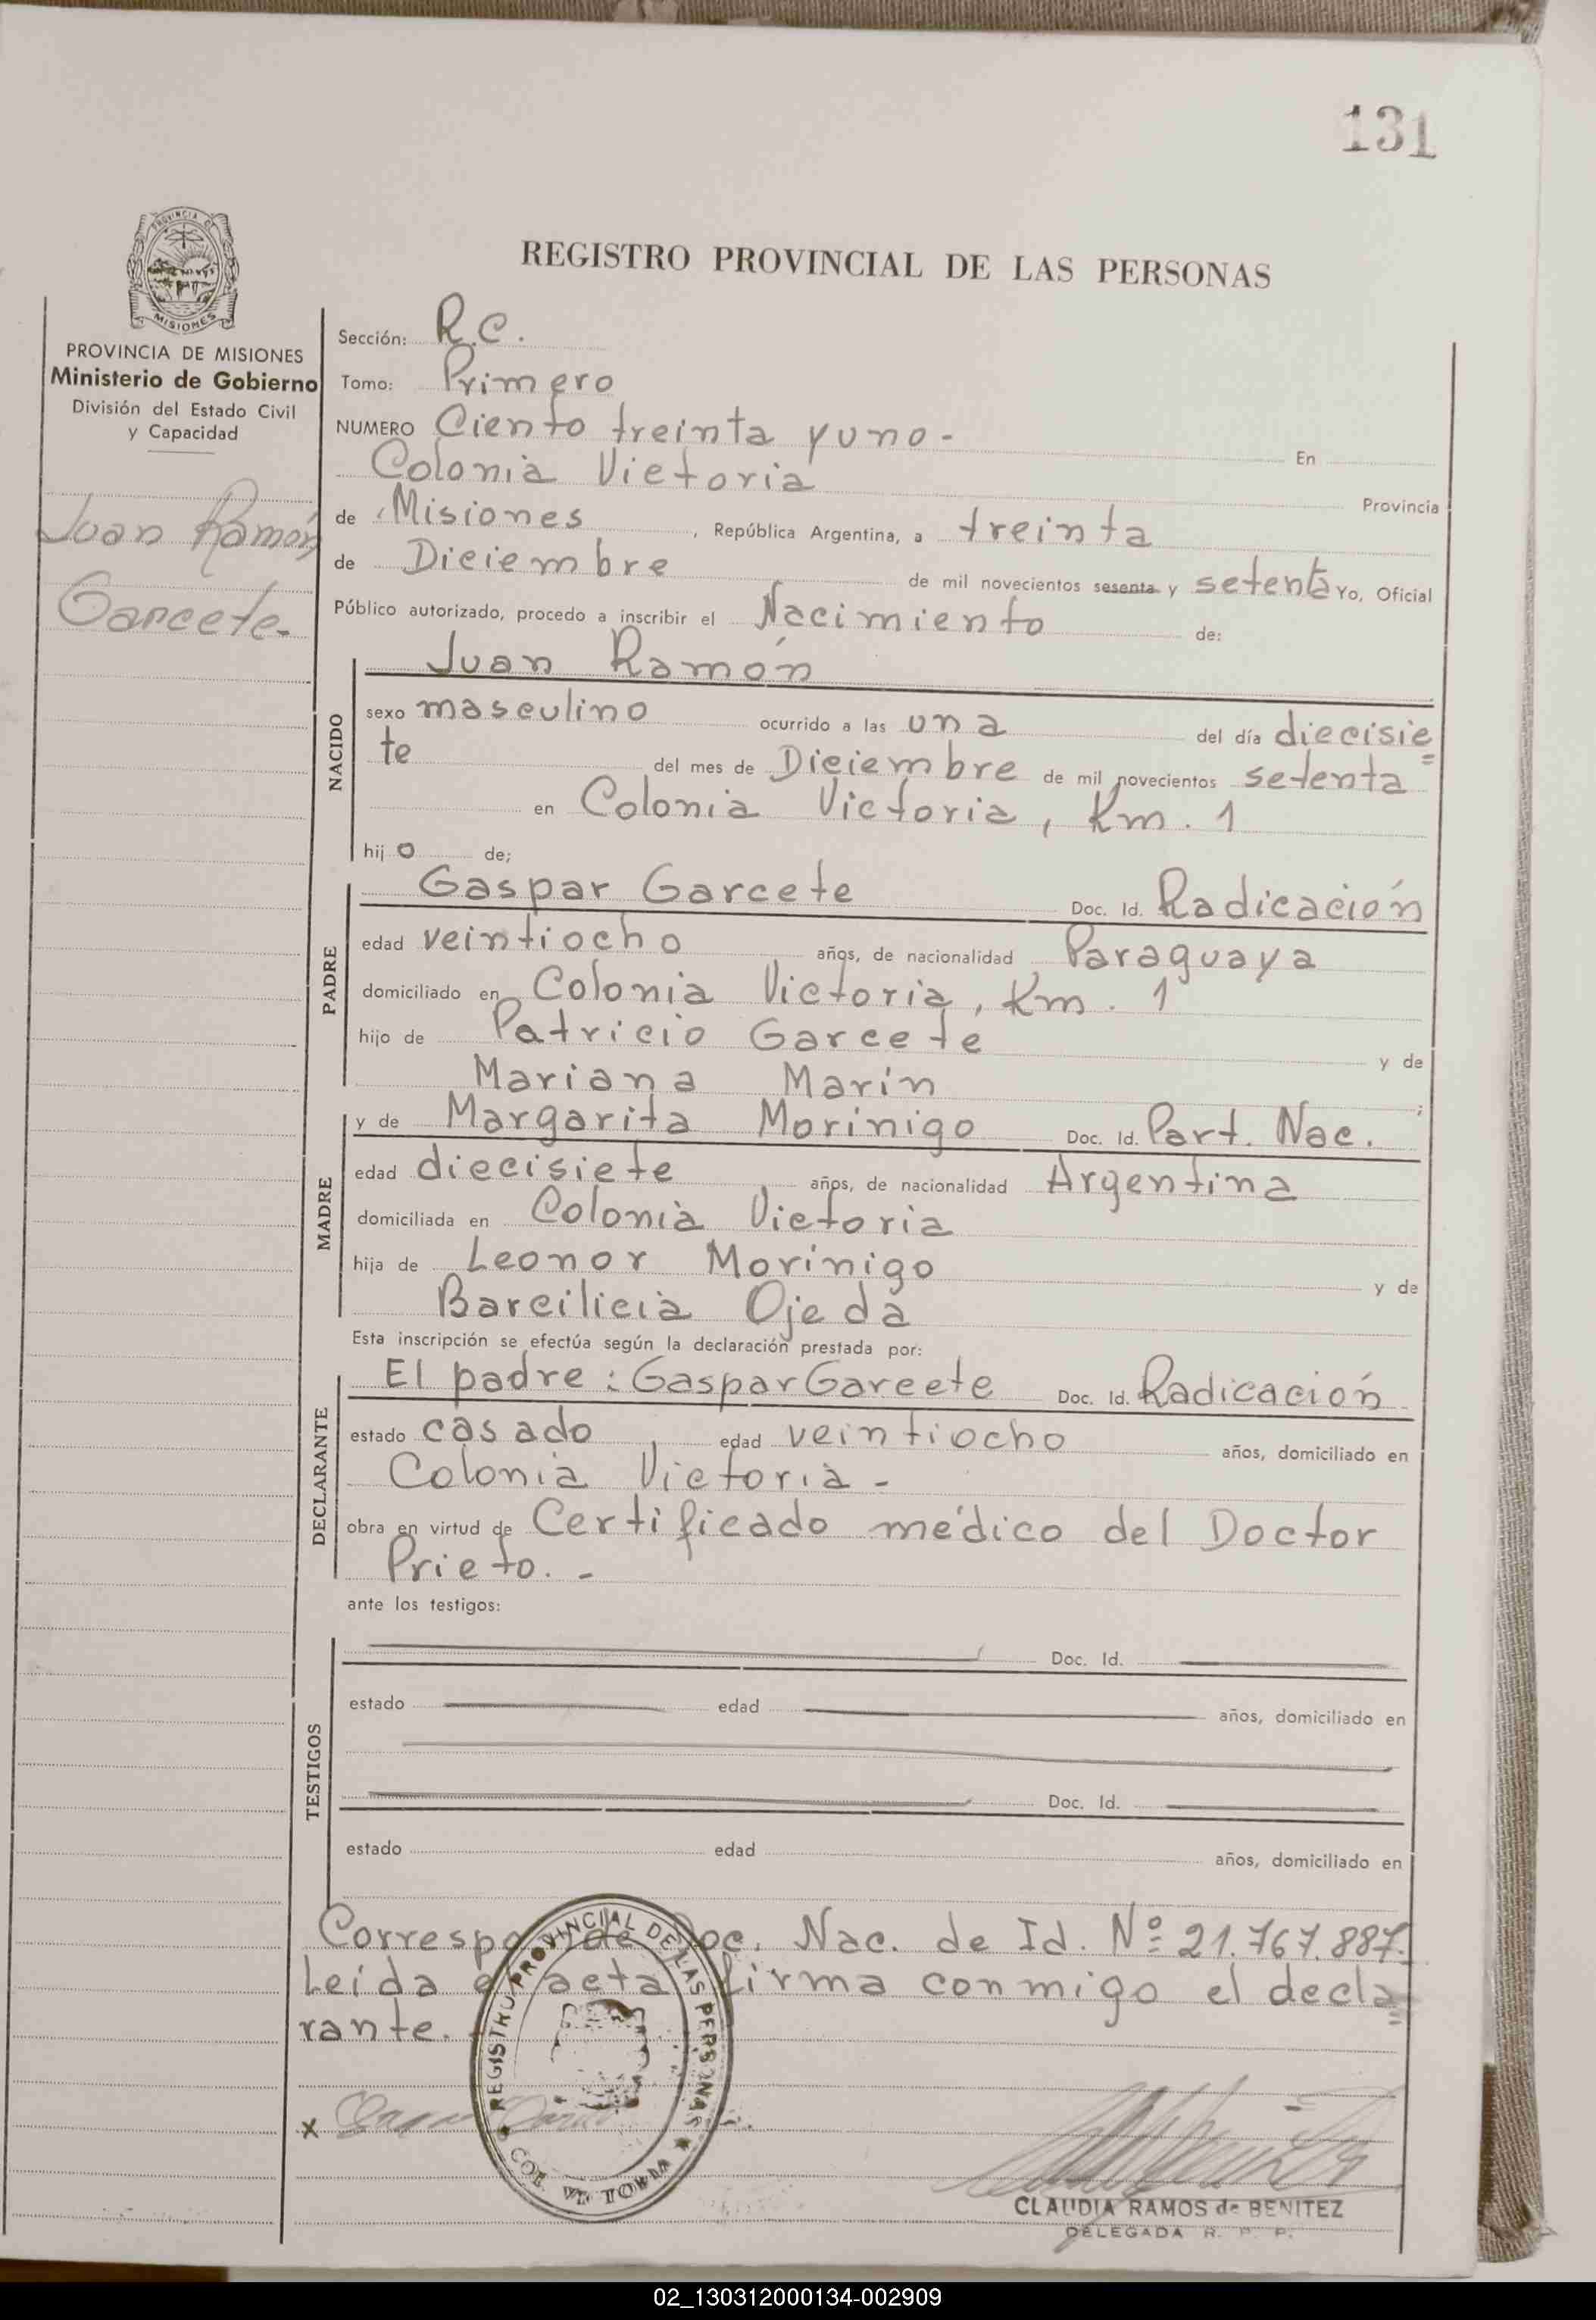 131
PROVINCIA DE MISIONES
Ministerio de Gobierno
División del Estado Civil
y Capacidad
Juan Ramón
Garcete-
REGISTRO PROVINCIAL DE LAS PERSONAS
Sección: R.C.
Tomo: Primero
NUMERO Ciento treinta y uno - En
Colonia Victoria Provincia
de Misiones, República Argentina, a treinta
de Diciembre de mil novecientos sesenta y setenta Yo, Oficial
Público autorizado, procedo a inscribir el Nacimiento de:
NACIDO
Juan Ramón
sexo masculino ocurrido a las una del día diecisie=
te del mes de Diciembre de mil novecientos setenta
en Colonia Victoria, Km. 1
hijo de;
PADRE
Gaspar Garcete Doc. Id. Radicación
edad veintiocho años, de nacionalidad Paraguaya
domiciliado en Colonia Victoria, Km. 1
hijo de Patricio Garcete y de
Mariana Marín ;
MADRE
y de Margarita Morinigo Doc. Id. Part. Nac.
edad diecisiete años, de nacionalidad Argentina
domiciliada en Colonia Victoria
hija de Leonor Morinigo y de
Barcilicia Ojeda
Esta inscripción se efectúa según la declaración prestada por:
DECLARANTE
El padre: Gaspar Garcete Doc. Id. Radicación
estado casado, edad veintiocho años, domiciliado en
Colonia Victoria -
obra en virtud de Certificado médico del Doctor
Prieto. -
ante los testigos:
TESTIGOS
Doc. Id.
estado edad años, domiciliado en
Doc. Id.
estado edad años, domiciliado en
Corresponde Doc. Nac. de Id. Nº 21.767.887.
Leída el acta firma conmigo el decla=
rante.
REGISTRO PROVINCIAL DE LAS PERSONAS
COL. VICTORIA
x
CLAUDIA RAMOS de BENITEZ
DELEGADA R. P. P.
02_130312000134-002909